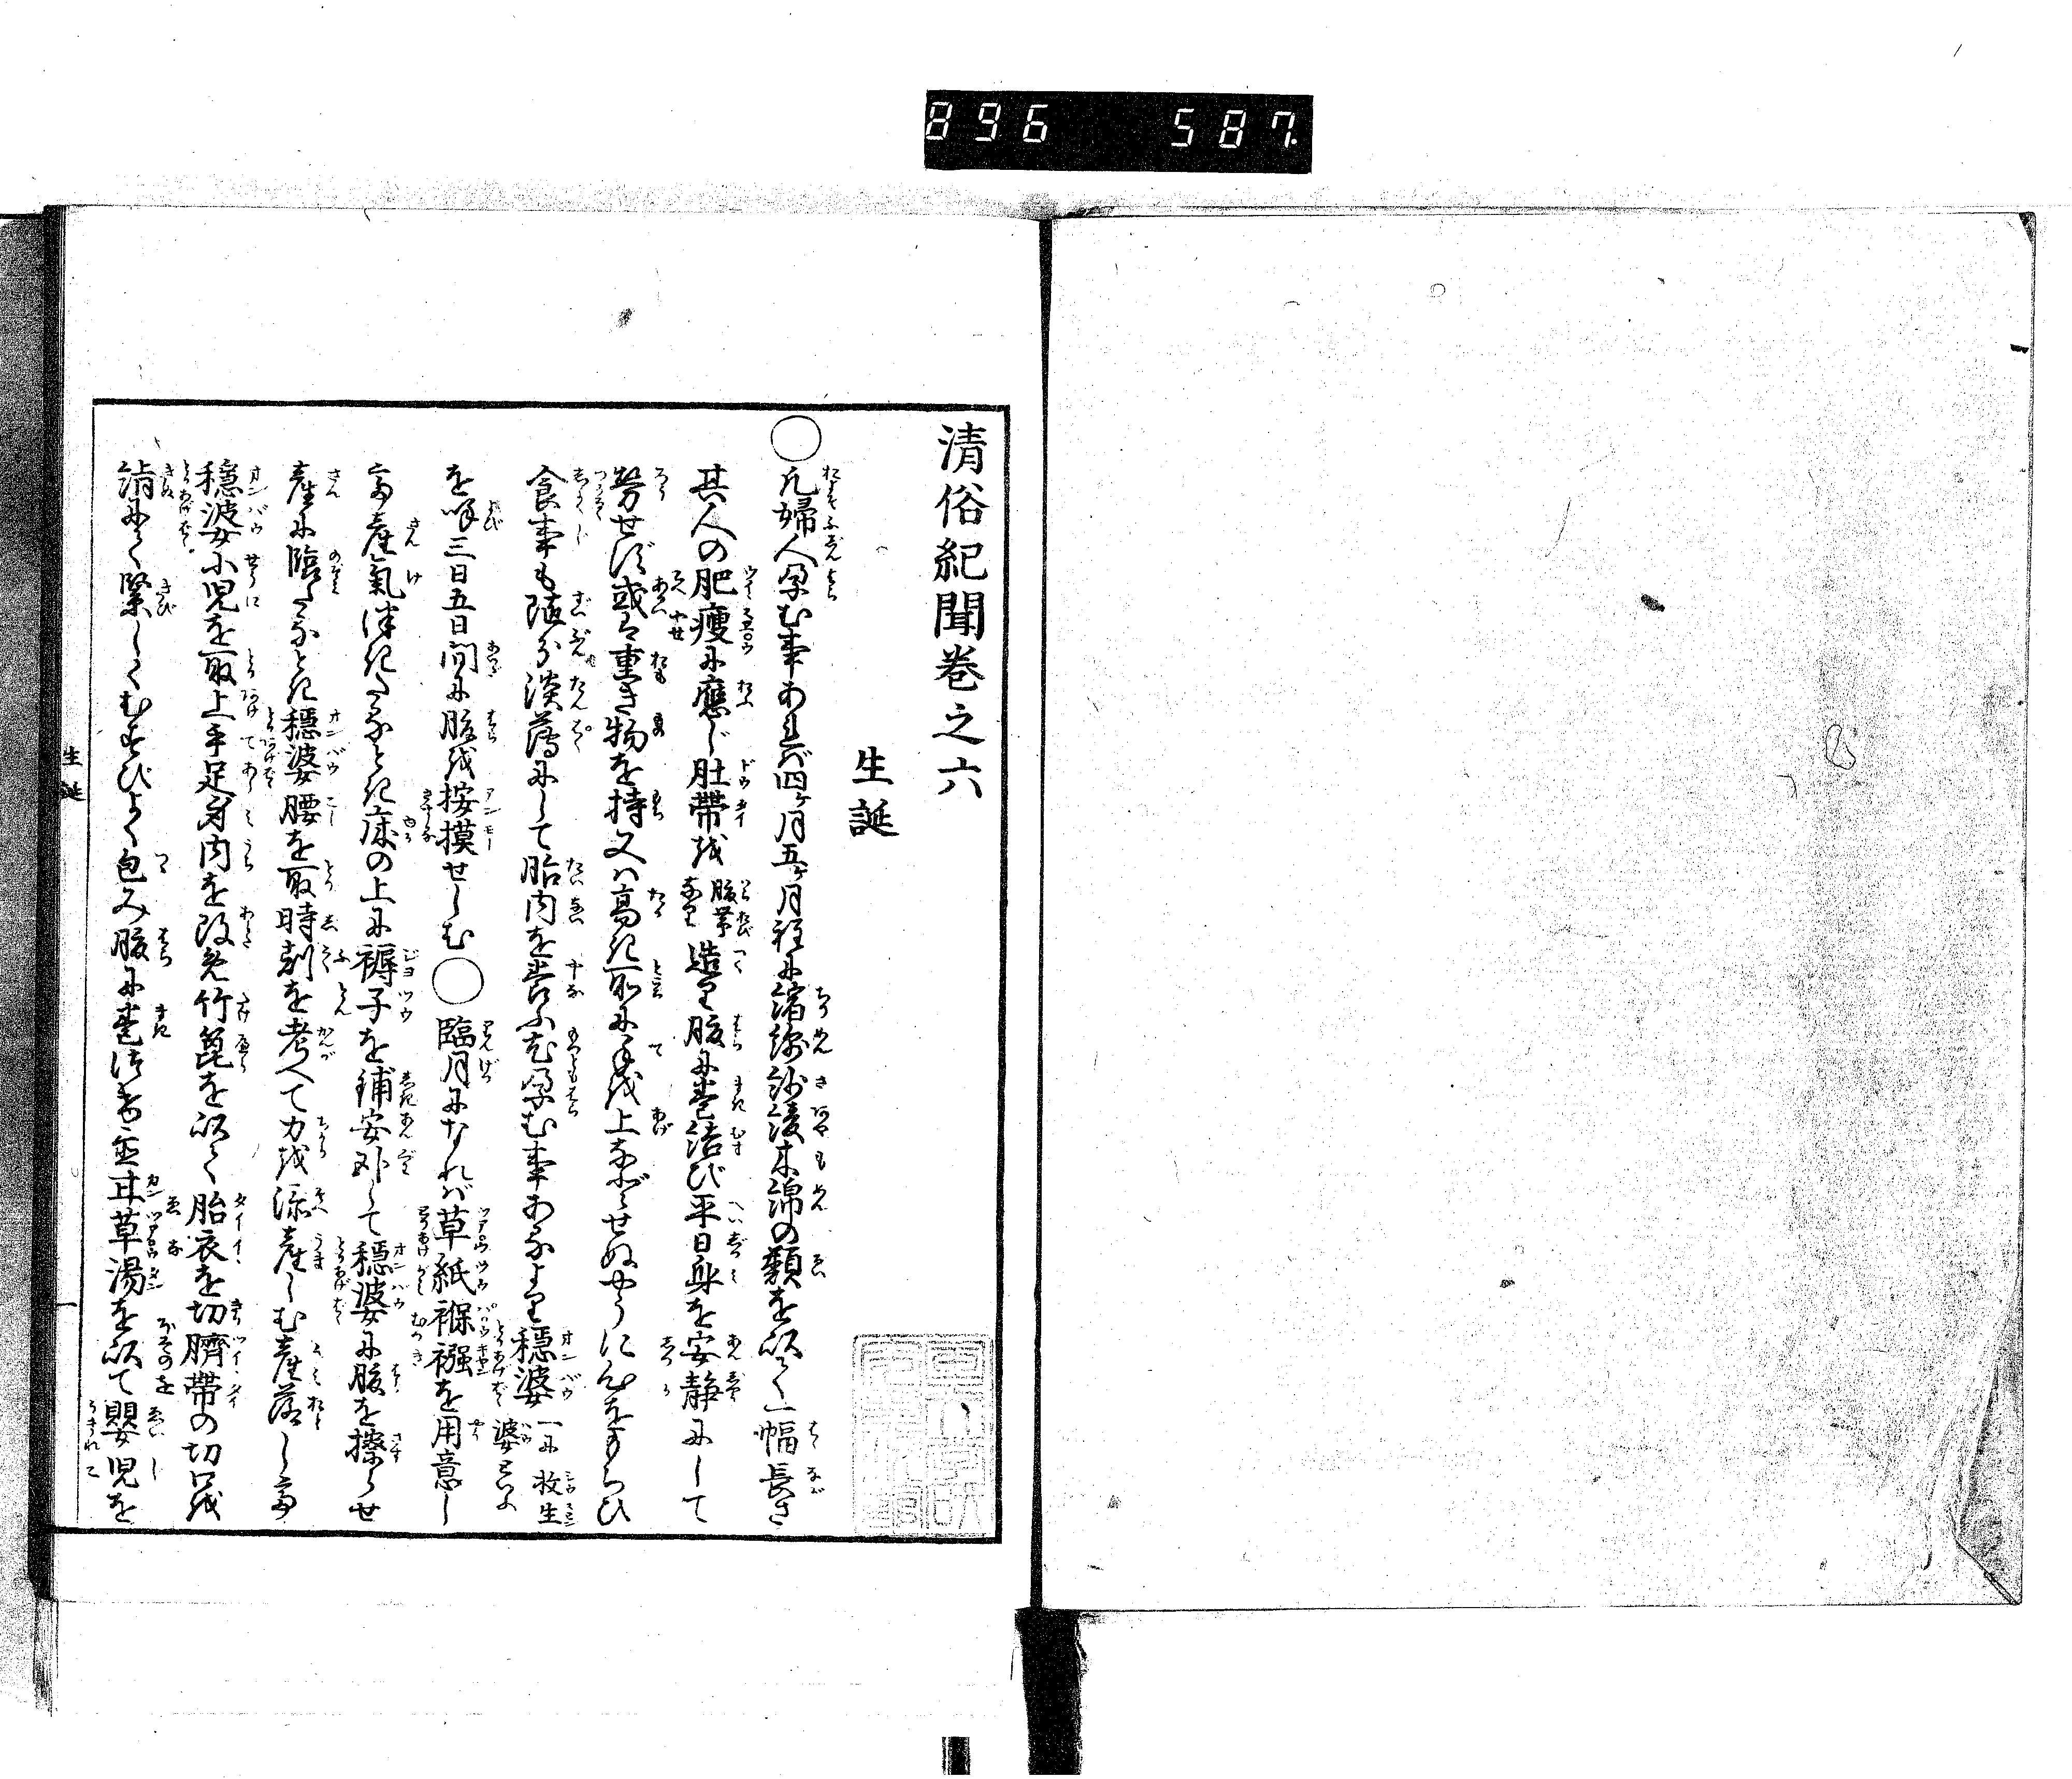 896 587
清俗紀聞巻之六
生誕
○凡婦人孕む事あれば四ヶ月五ヶ月程に縮緬紗綾木綿の類を以て一幅長さ
其人の肥痩に應じ肚帶を腹帯なり造り腹に巻結び平日身を安静にして
労せず或は重き物を持又は高き所に手を上などせぬやうに心をもちひ
食事も随分淡薄にして胎内を養ふ尤孕む事あるより穏婆一に收生婆といふ
を呼三日五日間に腹を按摸せしむ○臨月になれば草紙褓襁を用意し
産氣つきたるとき床の上に褥子を鋪安臥して穏婆に腹を擦らせ
産に臨たるとき穏婆腰を取時刻を考へて力を添産しむ産落し
穏婆小児を取上手足身内を改め竹箆を以て胎衣を切臍帶の切口を
絹にて緊しくむすびよく包み腹に巻つけ甘草湯を以て嬰児を
生誕
一